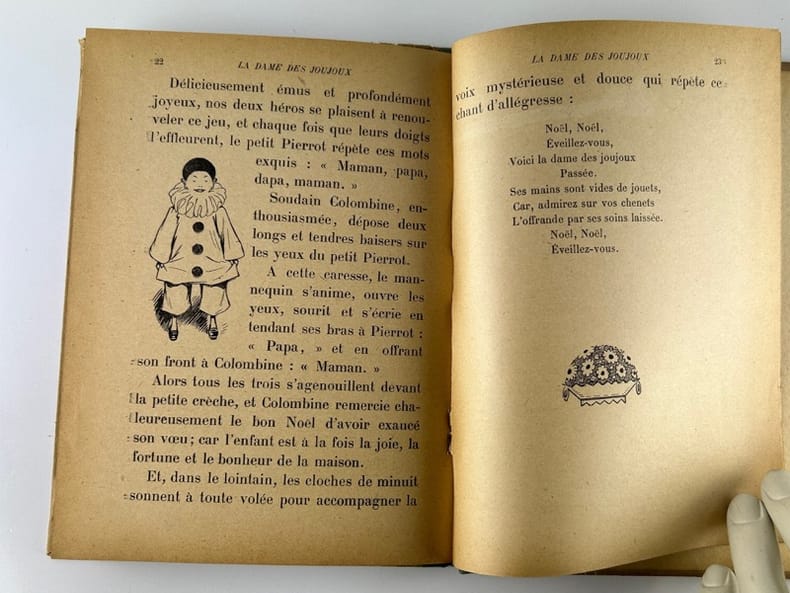 22
LA DAME DES JOUJOUX
Délicieusement émus et profondément
joyeux, nos deux héros se plaisent à renou-
veler ce jeu, et chaque fois que leurs doigts
l'effleurent, le petit Pierrot répète ces mots
exquis : « Maman, papa,
dapa, maman. »
Soudain Colombine, en-
thousiasmée, dépose deux
longs et tendres baisers sur
les yeux du petit Pierrot.
A cette caresse, le man-
nequin s'anime, ouvre les
yeux, sourit et s'écrie en
tendant ses bras à Pierrot :
« Papa, » et en offrant
son front à Colombine : « Maman. »
Alors tous les trois s'agenouillent devant
la petite crèche, et Colombine remercie cha-
leureusement le bon Noël d'avoir exaucé
son vœu; car l'enfant est à la fois la joie, la
fortune et le bonheur de la maison.
Et, dans le lointain, les cloches de minuit
sonnent à toute volée pour accompagner la
LA DAME DES JOUJOUX
23
voix mystérieuse et douce qui répète ce
chant d'allégresse :
Noël, Noël,
Éveillez-vous,
Voici la dame des joujoux
Passée.
Ses mains sont vides de jouets,
Car, admirez sur vos chenets
L'offrande par ses soins laissée.
Noël, Noël,
Éveillez-vous.